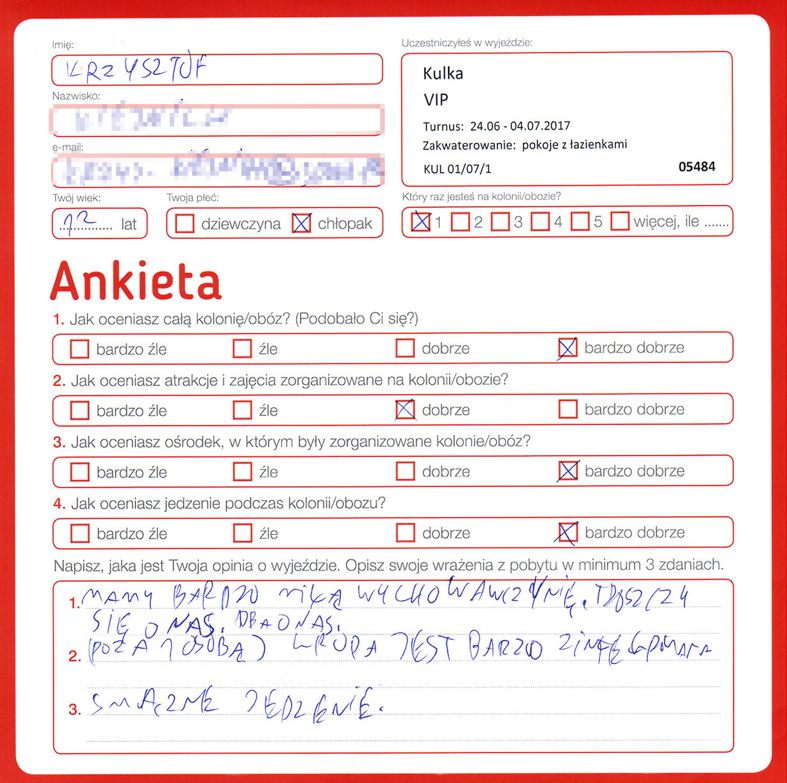 Imię:
KRZYSZTOF
Nazwisko:
e-mail:
Twój wiek:
12 lat
Twoja płeć:
dziewczyna chłopak
Uczestniczyłeś w wyjeździe:
Kulka
VIP
Turnus: 24.06 - 04.07.2017
Zakwaterowanie: pokoje z łazienkami
KUL 01/07/1 05484
Który raz jesteś na kolonii/obozie?
1 2 3 4 5 więcej, ile .......
Ankieta
1. Jak oceniasz całą kolonię/obóz? (Podobało Ci się?)
bardzo źle źle dobrze bardzo dobrze
2. Jak oceniasz atrakcje i zajęcia zorganizowane na kolonii/obozie?
bardzo źle źle dobrze bardzo dobrze
3. Jak oceniasz ośrodek, w którym były zorganizowane kolonie/obóz?
bardzo źle źle dobrze bardzo dobrze
4. Jak oceniasz jedzenie podczas kolonii/obozu?
bardzo źle źle dobrze bardzo dobrze
Napisz, jaka jest Twoja opinia o wyjeździe. Opisz swoje wrażenia z pobytu w minimum 3 zdaniach.
1. MAMY BARDZO MIŁĄ WYCHOWAWCZYNIĘ.
SIĘ O NAS. DBA O NAS.
2. (POZA 1 OSOBĄ) JEST BARDZO
3. SMACZNE JEDZENIE.